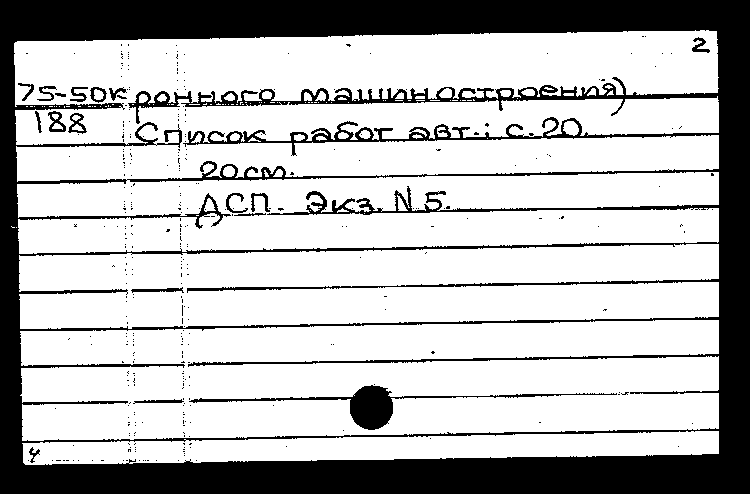 2
75-50к ронного машиностроения).
188 Список работ авт.: с. 20.
20 см.
ДСП. Экз. N 5.
4